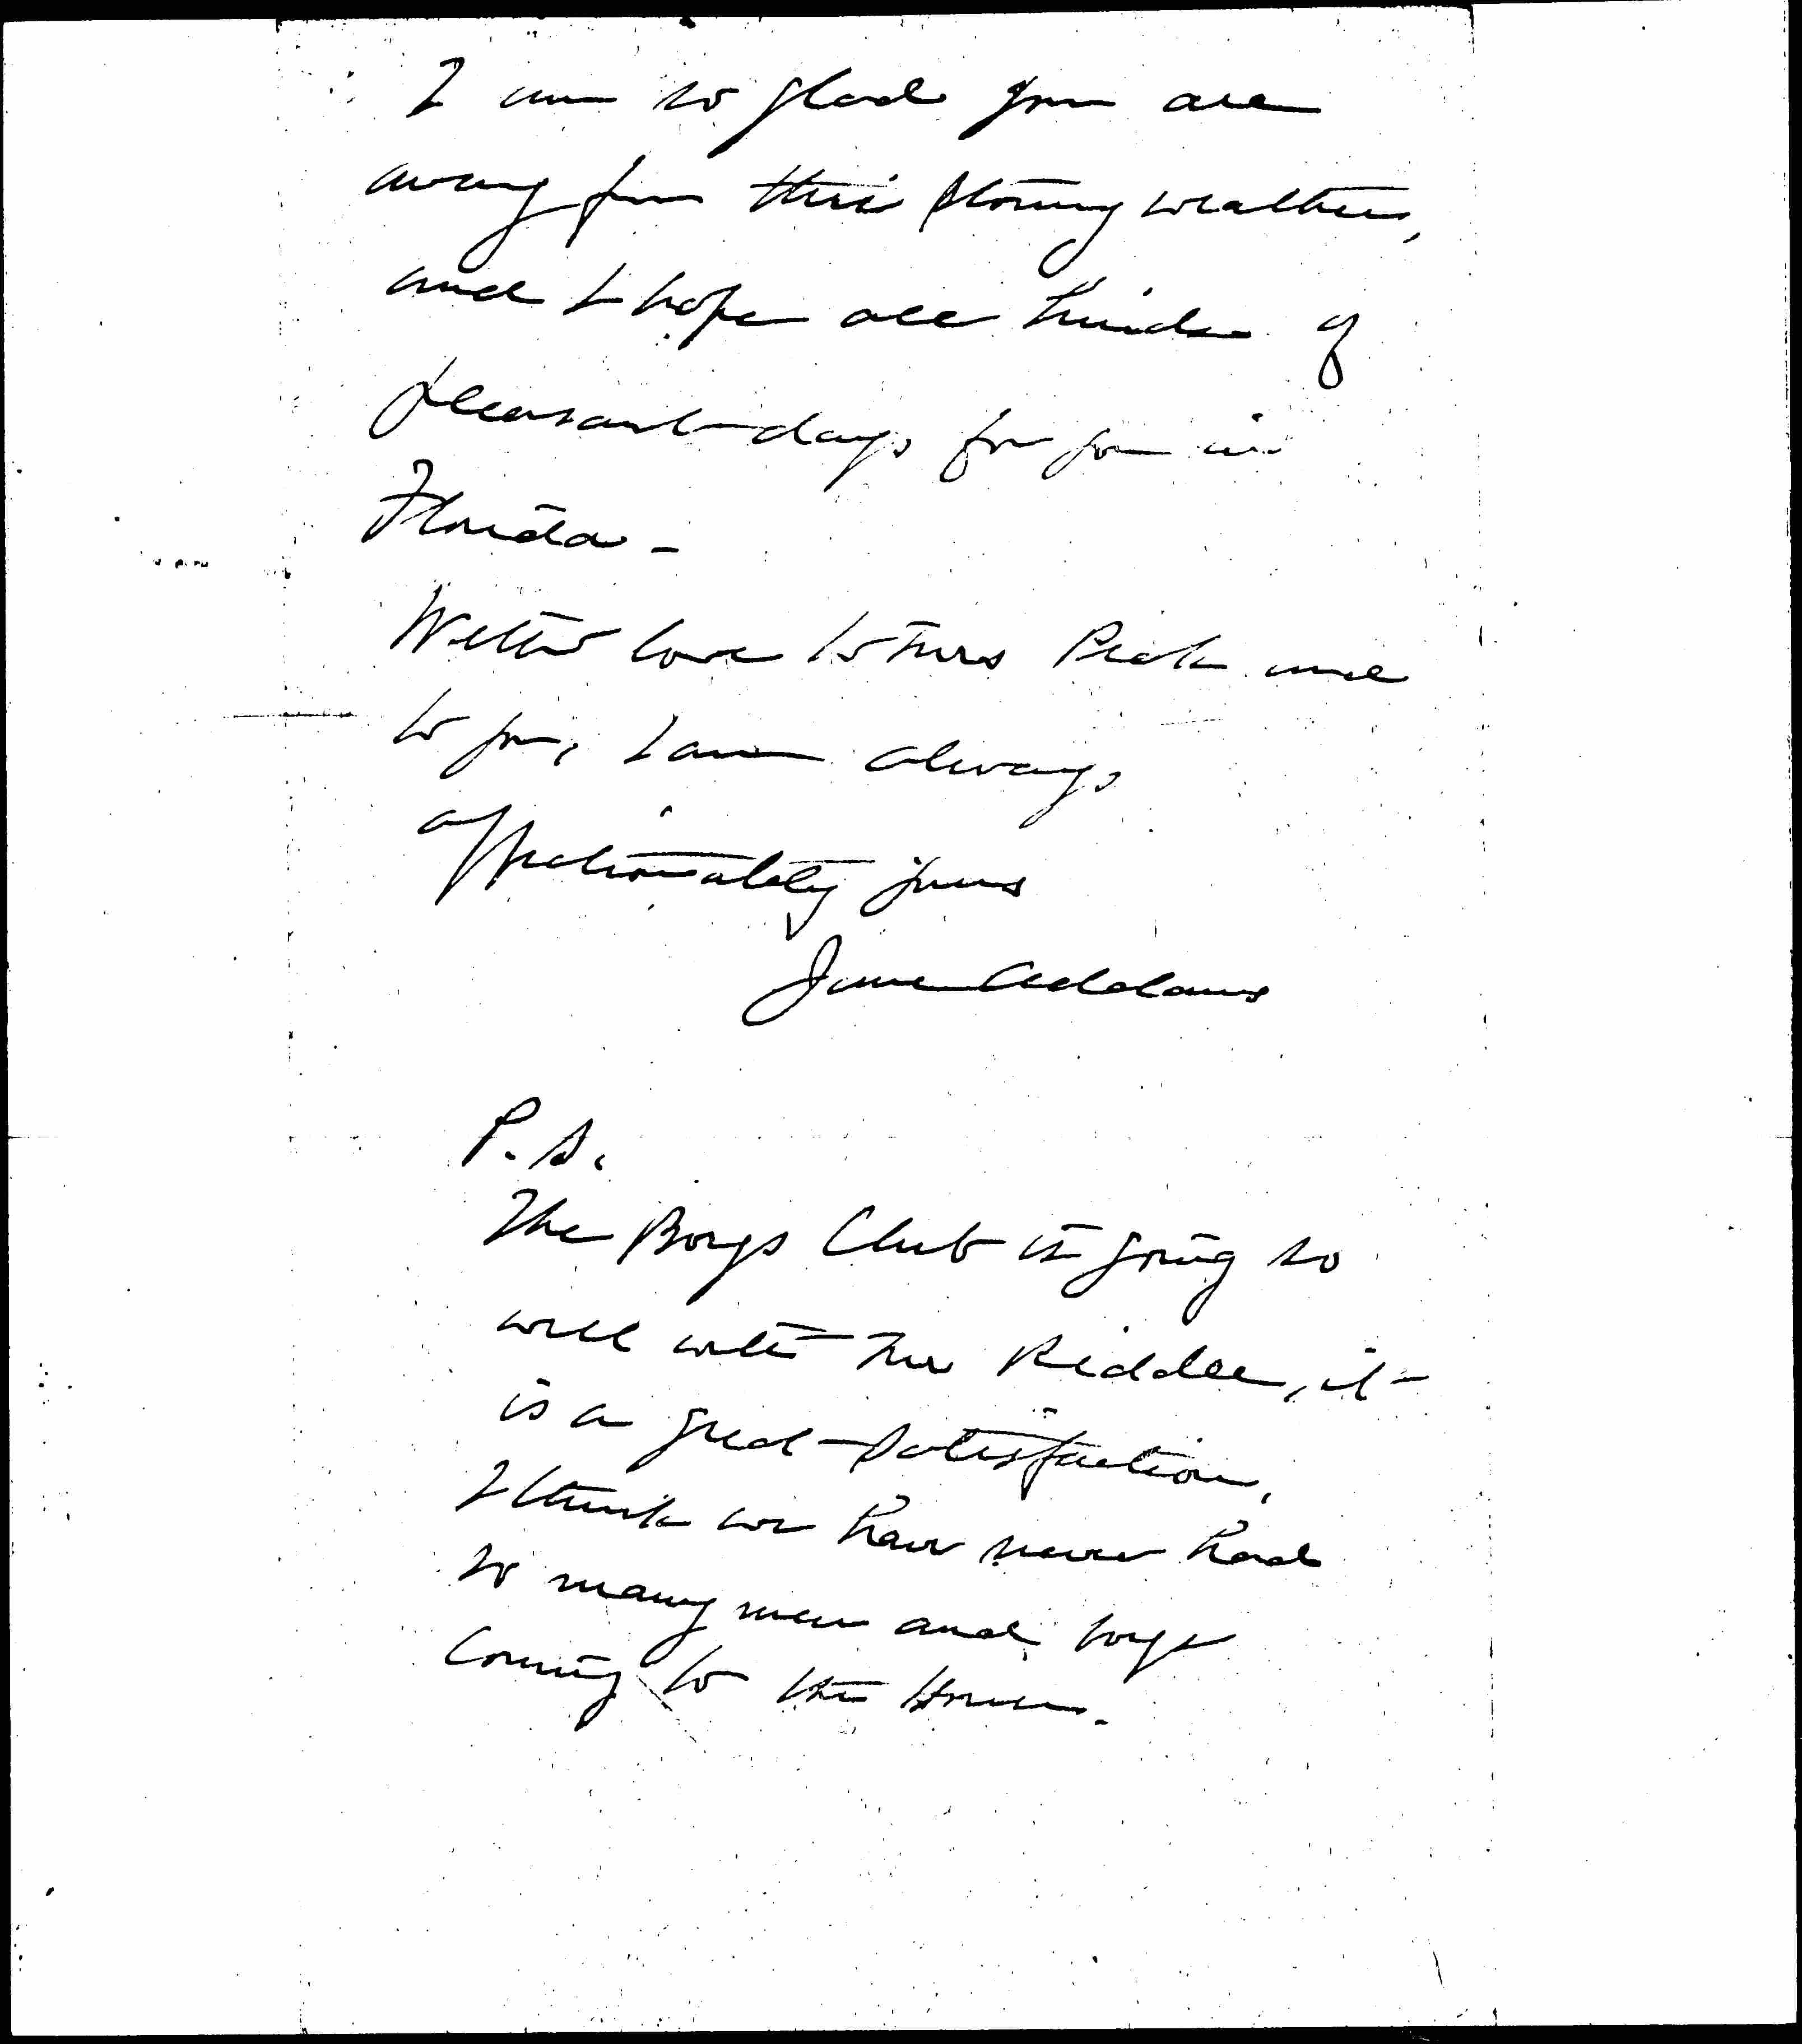 I am so glad you are
away from this stormy weather,
and I hope all kinds of
pleasant days for you in
Florida -
With love to Mrs Peck and
to you, I am always
affectionately yours
Jane Addams
P.S.
The Boys Club is going so
well with Mr Riddle, it
is a great satisfaction,
I think we have never had
so many men and boys
coming to the House.